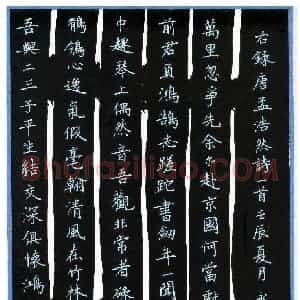 吾與二三子平生結交深俱懷鴻
鶺鴒心逸氣假毫翰清風在竹林
中趣琴上偶然音吾觀非常者碌
前君負鴻鵠志蹉跎書劍年一聞
萬里忽爭先余亦赴京國何當獻
右錄唐孟浩然詩首壬辰夏月
Shufaziliao.com